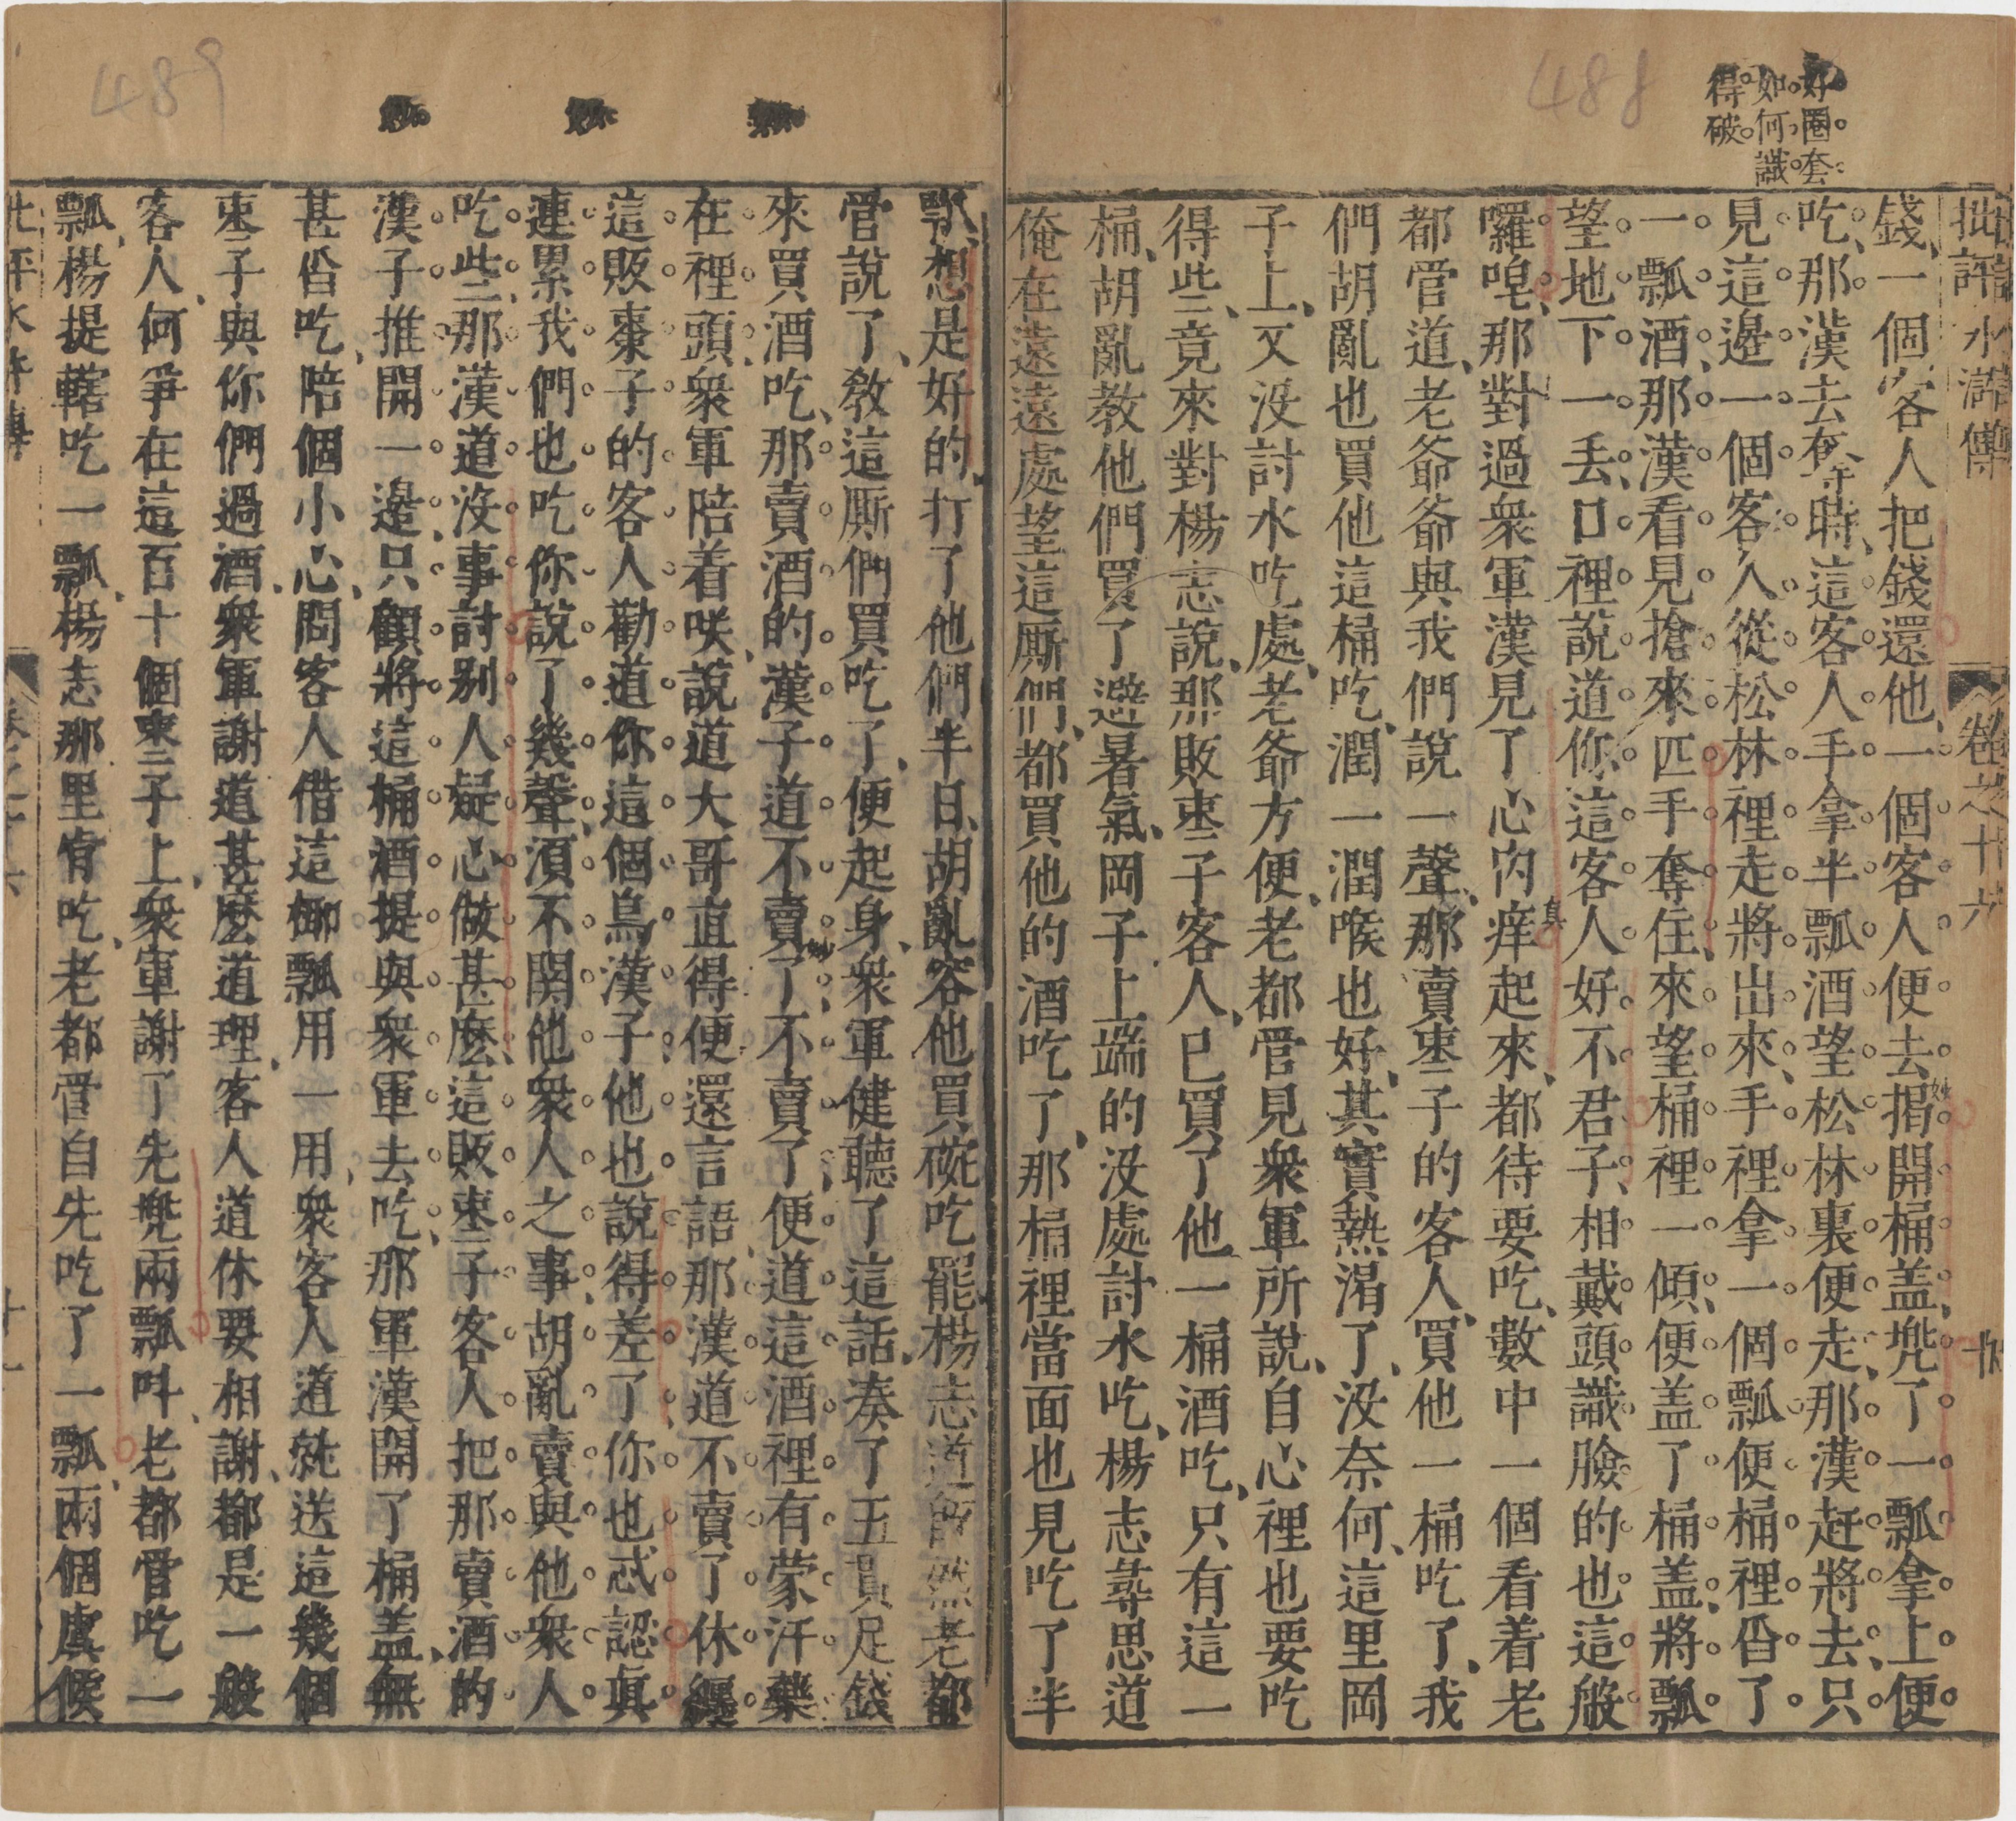 好圈套
如何識
得破
488
批評水滸傳 卷之十六 十
錢、一個客人把錢還他、一個客人便去揭開桶盖、兜了一瓢拿上便
妙
吃、那漢去奪時、這客人手拿半瓢酒望松林裏便走、那漢赶將去、只
見這邊一個客人從松林裡走將出來、手裡拿一個瓢便桶裡舀了
一瓢酒、那漢看見搶來匹手奪住、來望桶裡一傾、便盖了桶盖、將瓢
望地下一丟、口裡說道你這客人好不君子、相戴頭識臉的也這般
囉唣、那對過衆軍漢見了心內痒起來、都待要吃、數中一個看着老
真
都管道、老爺爺與我們說一聲、那賣棗子的客人、買他一桶吃了、我
們胡亂也買他這桶吃、潤一潤喉也好、其實熱渴了、沒奈何、這里岡
子上、又沒討水吃處、老爺方便、老都管見衆軍所說、自心裡也要吃
得些、竟來對楊志說、那販棗子客人、已買了他一桶酒吃、只有這一
桶、胡亂教他們買了避暑氣、岡子上端的沒處討水吃、楊志尋思道
俺在遠遠處望這廝們、都買他的酒吃了、那桶裡當面也見吃了半
489
瓢、想是好的、打了他們半日、胡亂容他買碗吃罷、楊志道既然老都
管說了、教這廝們買吃了、便起身、衆軍健聽了這話、凑了五貫足錢
來買酒吃、那賣酒的漢子道不賣了、不賣了、便道這酒裡有蒙汗藥
妙
在裡頭、衆軍陪着咲、說道大哥直得便還言語、那漢道不賣了休纏
這販棗子的客人勸道你這個鳥漢子、他也說得差了你也忒認真
連累我們也吃你說了幾聲、須不関他衆人之事、胡亂賣與他衆人
吃些、那漢道沒事討别人疑心做甚麼、這販棗子客人把那賣酒的
漢子推開一邊、只顧將這桶酒提與衆軍去吃、那軍漢開了桶盖、無
甚舀吃、陪個小心、問客人借這椰瓢用一用、衆客人道就送這幾個
棗子與你們過酒、衆軍謝道甚麼道理、客人道休要相謝、都是一般
客人、何爭在這百十個棗子上、衆軍謝了先兜兩瓢、叫老都管吃一
瓢、楊提轄吃一瓢、楊志那里肯吃、老都管自先吃了一瓢、兩個虞候